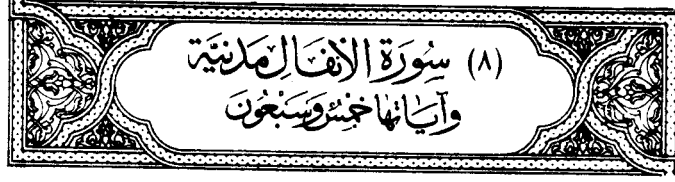 (٨) سُورَة الأنفَال مَدَنيَّة
وآيَاتهَا خَمْسٌ وَسَبْعُونَ